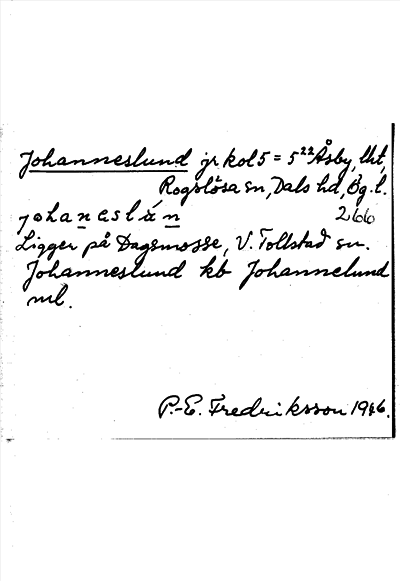 Johanneslund jr kol 5 = 5²² Åsby, lht,
Rogslösa sn, Dals hd, Ög. l.
johaneslún 266
Ligger på Dagsmosse, V. Tollstad sn.
Johanneslund kb Johannelund
ml.
P.-E. Fredriksson 1946.